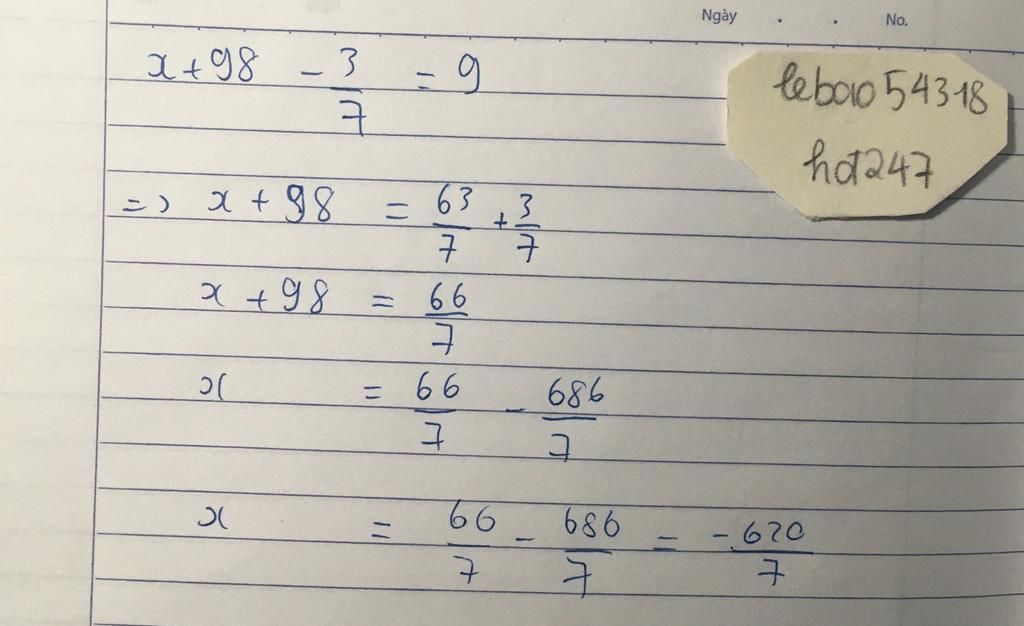 Ngày . . No.
x + 98 - 3/7 = 9
lebao54318
hot247
=> x + 98 = 63/7 + 3/7
x + 98 = 66/7
x = 66/7 - 686/7
x = 66/7 - 686/7 = -620/7